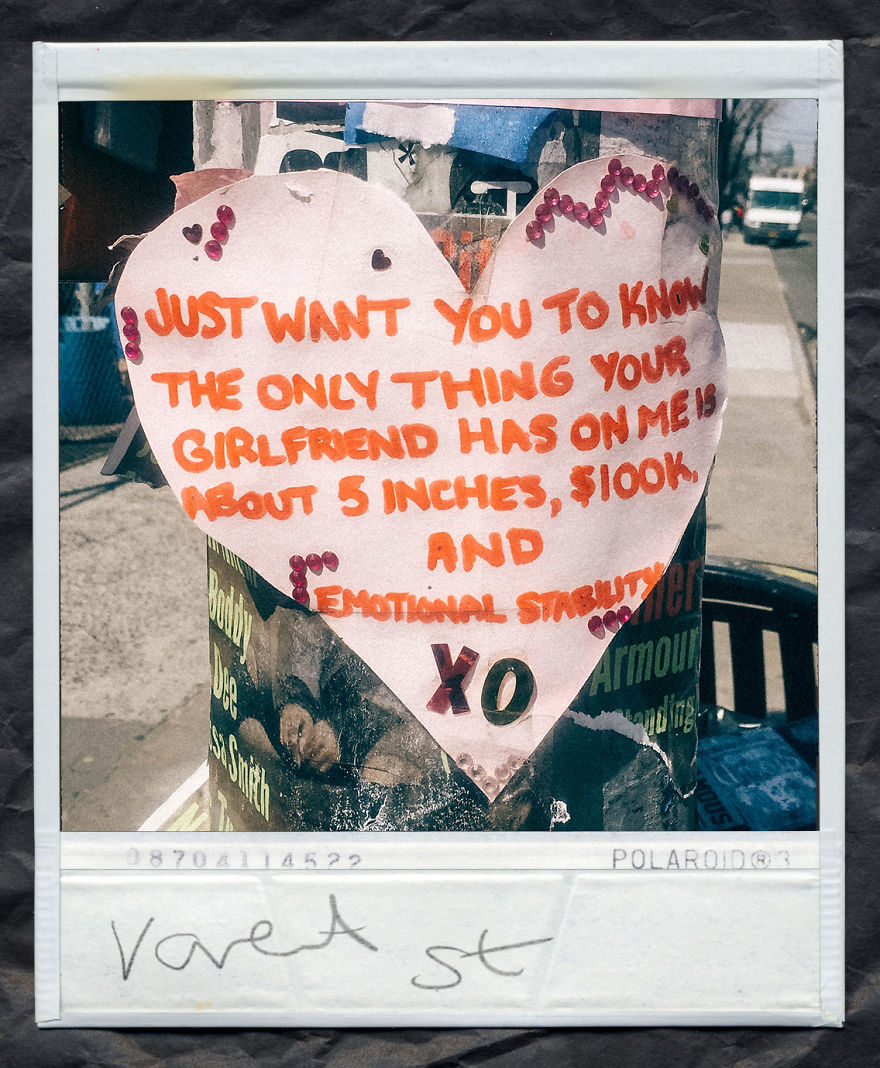 JUST WANT YOU TO KNOW
THE ONLY THING YOUR
GIRLFRIEND HAS ON ME IS
ABOUT 5 INCHES, $100K,
AND
EMOTIONAL STABILITY
XO
Daddy
Dee
Smith
Armour
POLAROID®3
St